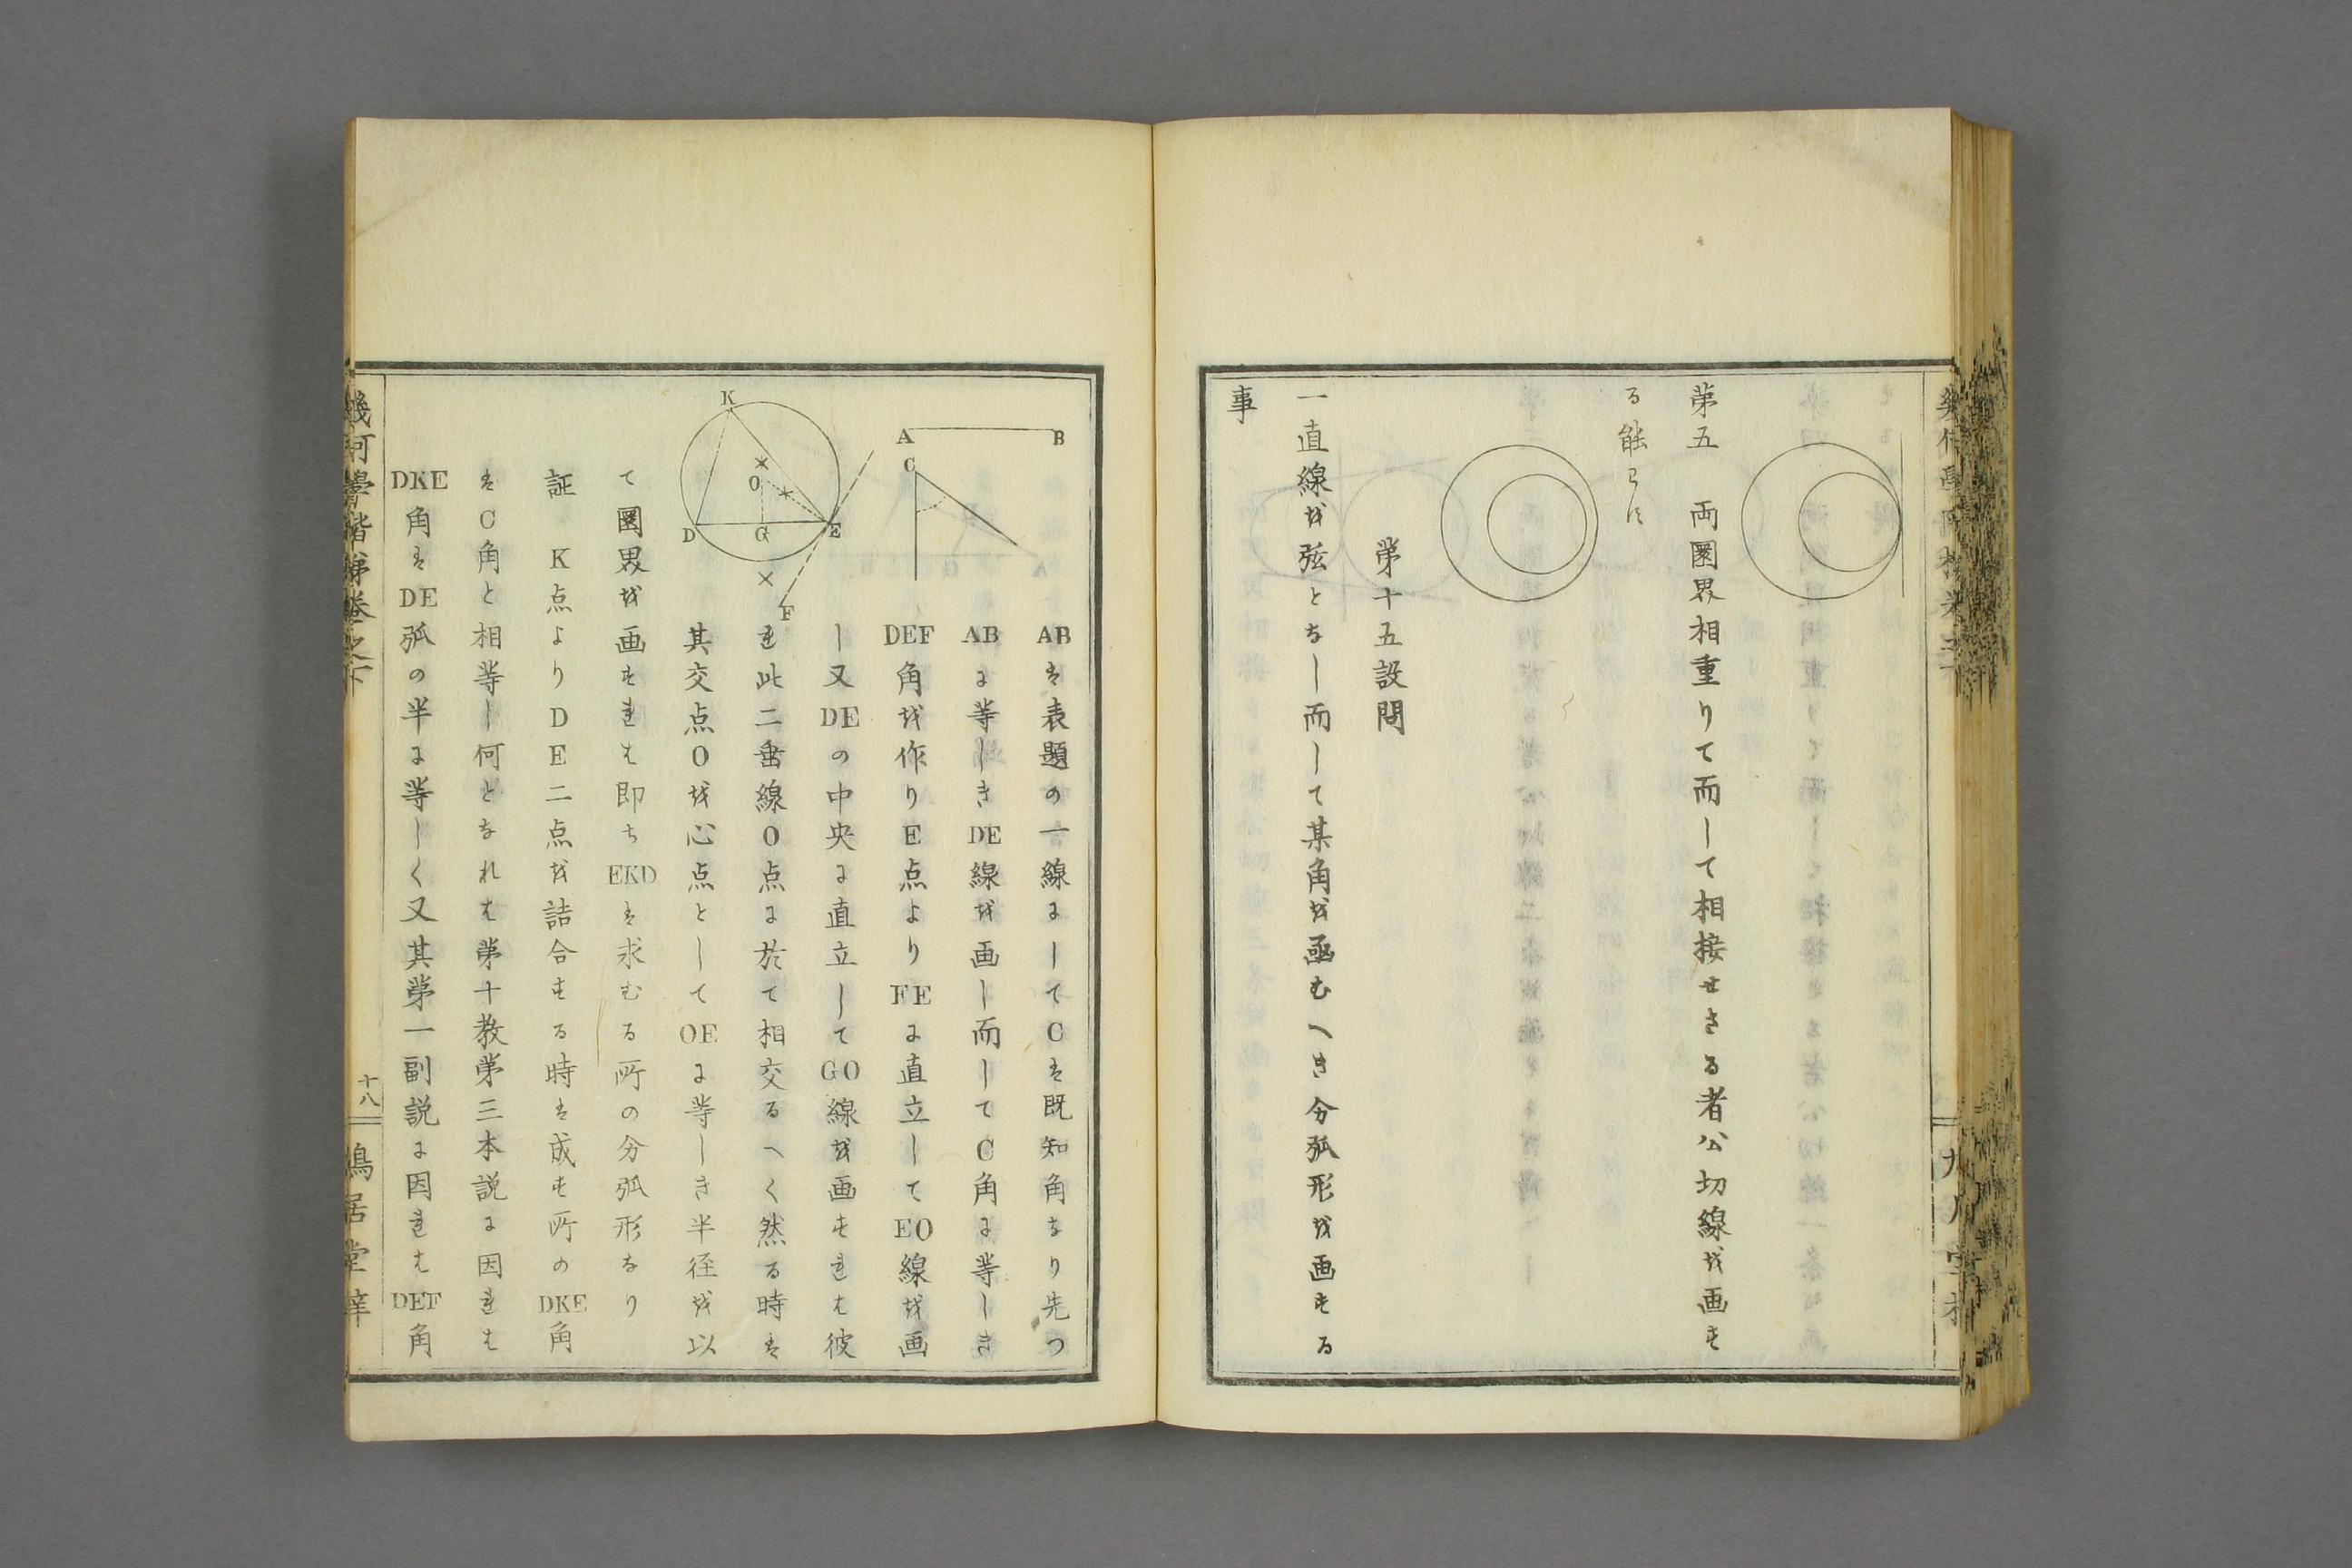 第五　両圏界相重りて而して相接せさる者公切線を画す
る能はす
第十五設問
一直線を弦となし而して某角を函むへき分弧形を画する
事
A B
C
K
O
D G E
F
ABは表題の一線にしてCは既知角なり先つ
ABに等しきDE線を画し而してC角に等しき
DEF角を作りE点よりFEに直立してEO線を画
し又DEの中央に直立してGO線を画すれは彼
れ此二垂線O点に於て相交るへく然る時は
其交点Oを心点としてOEに等しき半径を以
て圏界を画すれは即ちEKDは求むる所の分弧形なり
証　K点よりDE二点を詰合する時は成す所のDKE角
はC角と相等し何となれは第十教第三本説に因れは
DKE角はDE弧の半に等しく又其第一副説に因れはDEF角
幾何學階梯巻之下
十八
居堂梓